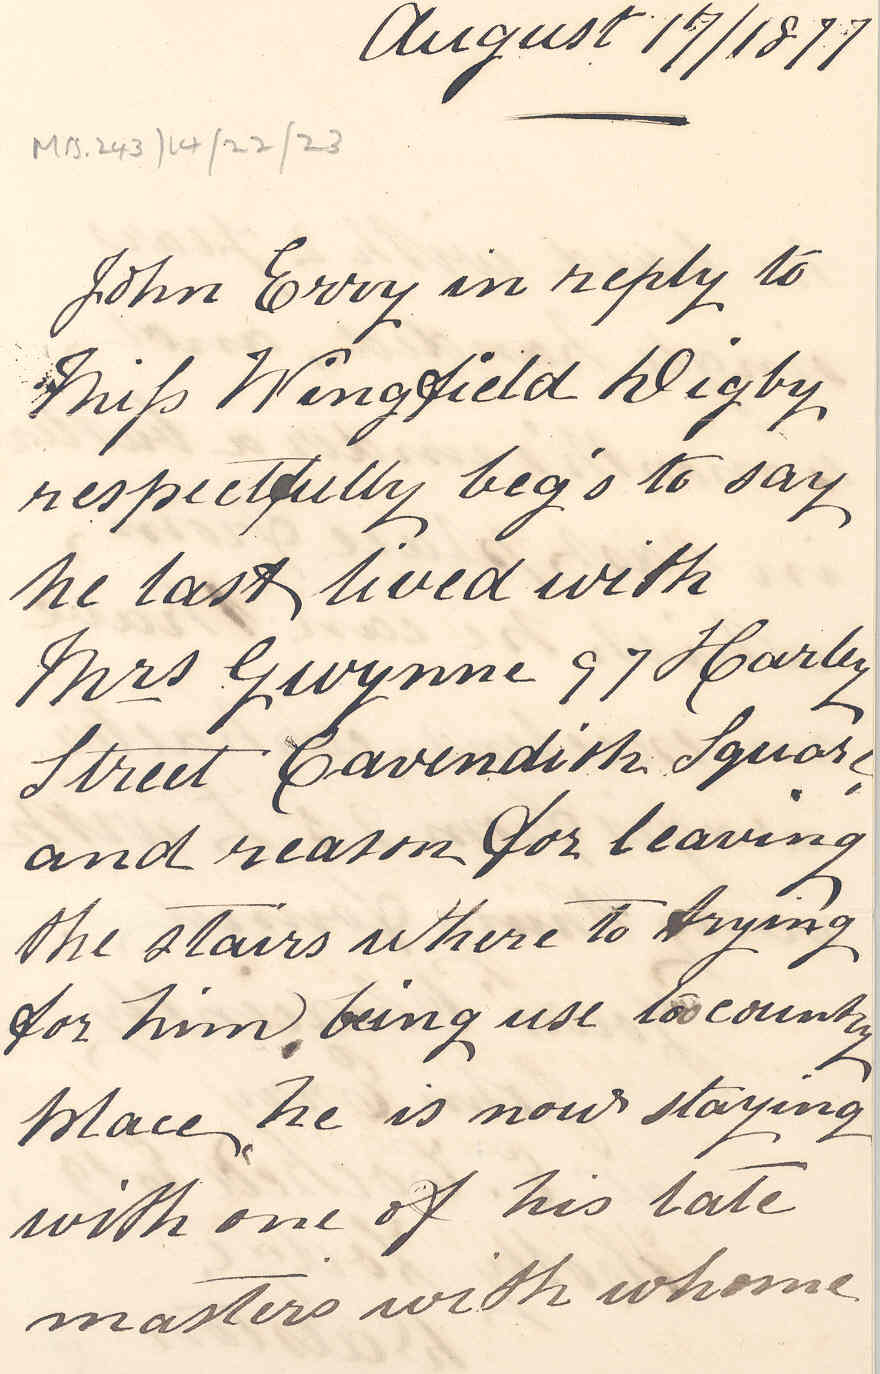 August 17/1877
MB.243/14/22/23
John Erry in reply to
Miſs Wingfield Digby
respectfully beg's to say
he last lived with
Mrs Gwynne 97 Harley
Street Cavendish Square,
and reason for leaving
the stairs where to trying
for him, being use to country
place, he is now staying
with one of his late
masters with whome